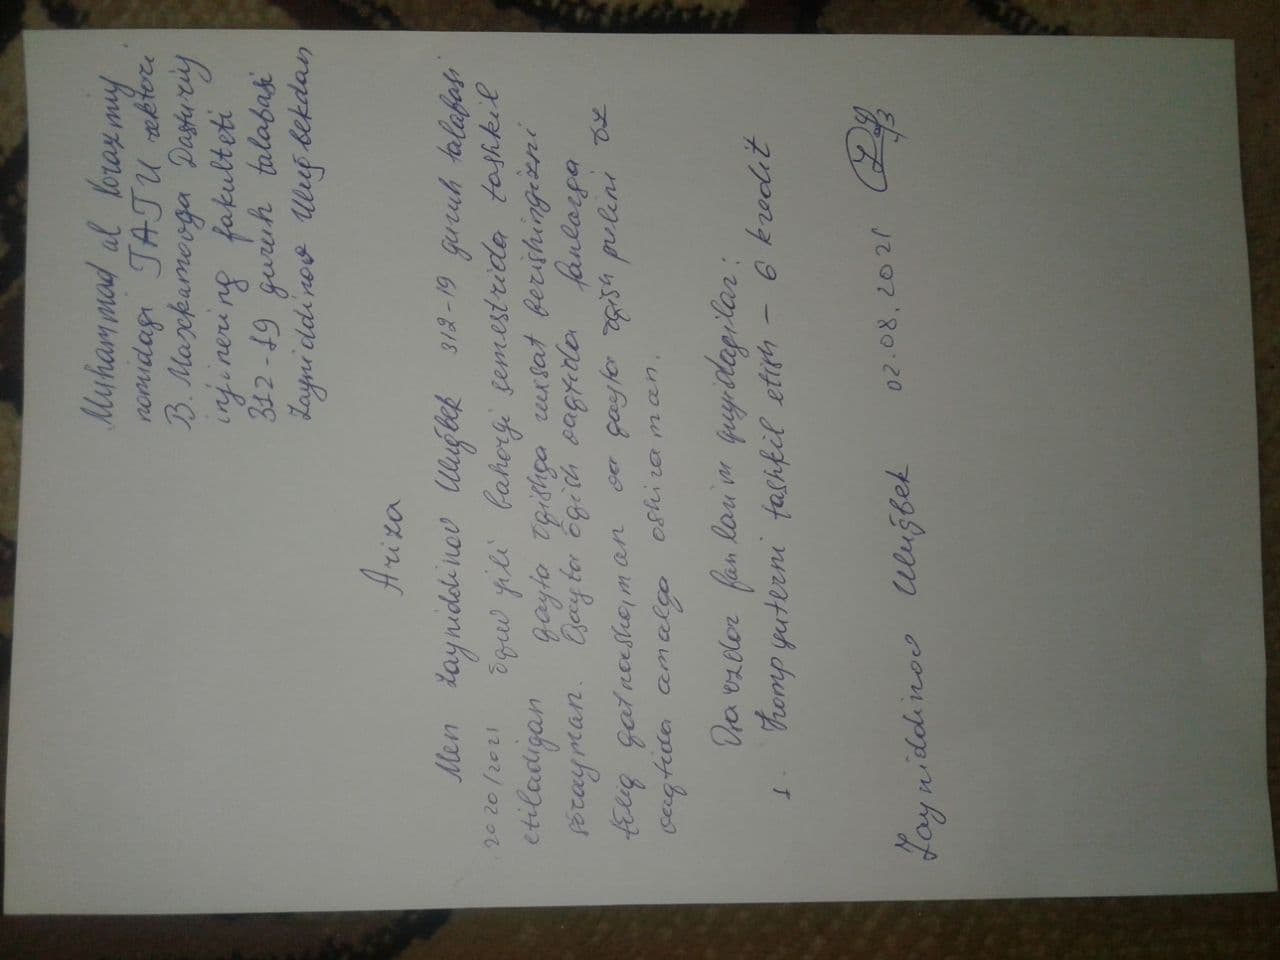 Muhammad al Xorazmiy
nomidagi TATU rektori
B. Maxkamovga Dasturiy
injinering fakulteti
312-19 guruh talabasi
Zayniddinov Ulug̃bekdan
Ariza
Men Zayniddinov Ulug̃bek 312-19 guruh talabasi
2020/2021 õquv yili bahorgi semestrida tashkil
etiladigan qayta õqishga ruxsat berishingizni
sõrayman. Qayta õqish vaqtida fanlarga
tõliq qatnashaman va qayta õqish pulini õz
vaqtida amalga oshiraman.
Qarzdor fanlarim quyidagilar:
1. Kompyuterni tashkil etish - 6 kredit
Zayniddinov Ulug̃bek 02.08.2021